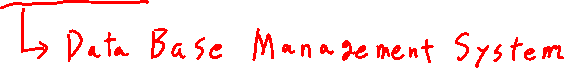 Data Base Management System